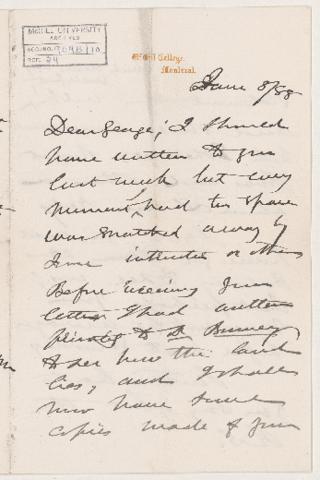 McGILL UNIVERSITY
ARCHIVES
ACC. NO.
REF. 24
McGill College,
Montreal.
June 8/88
Dear George; I should
have written to you
last week but every
moment I had to spare
was snatched away by
some intruder or others
Before receiving your
letter I had written
privately to Dr
to see how the land
lies, and I shall
now have some
copies made of your